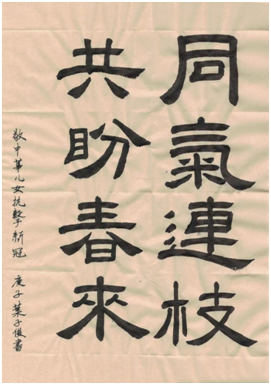 同氣連枝
共盼春來
敬中華儿女抗擊新冠 庚子葉子俊書